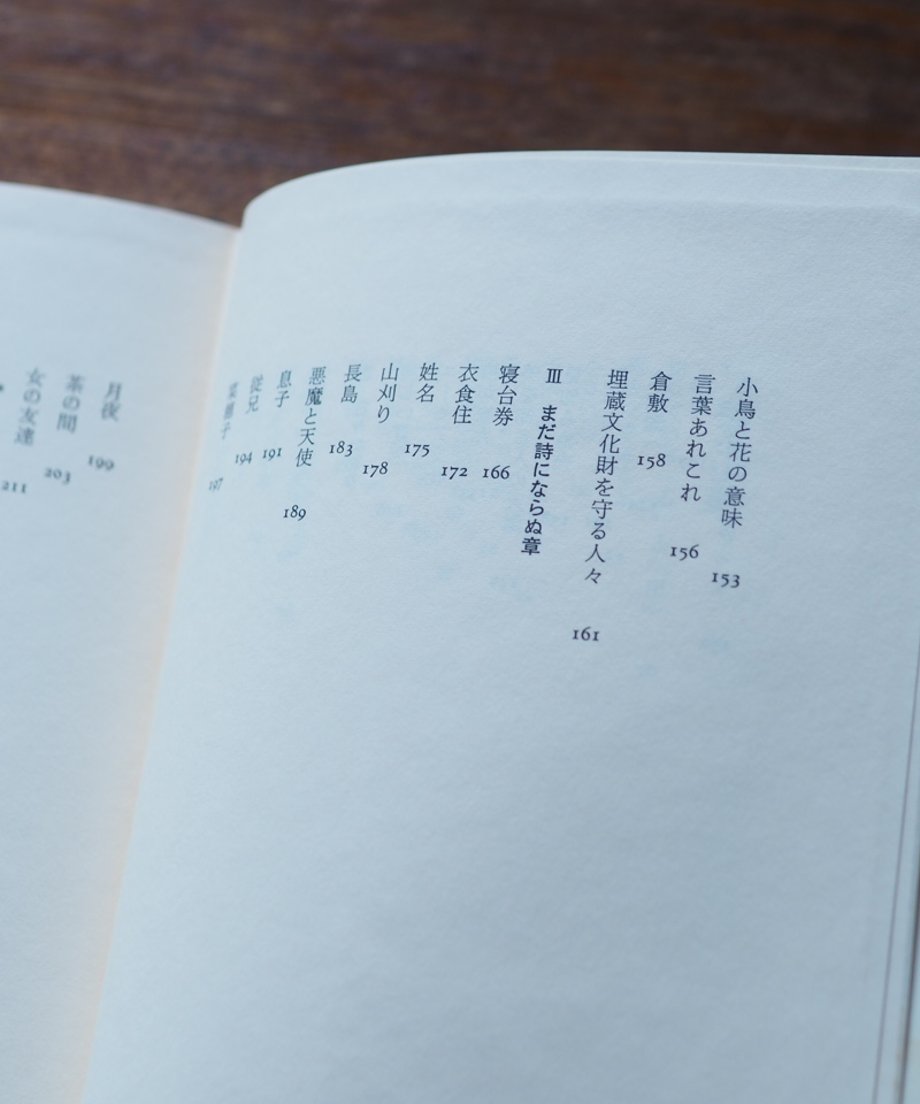 小鳥と花の意味 153
言葉あれこれ 156
倉敷 158
埋蔵文化財を守る人々 161
Ⅲ まだ詩にならぬ章
寝台券 166
衣食住 172
姓名 175
山刈り 178
長島 183
悪魔と天使 189
息子 191
従兄 194
197
月夜 199
茶の間 203
女の友達 211